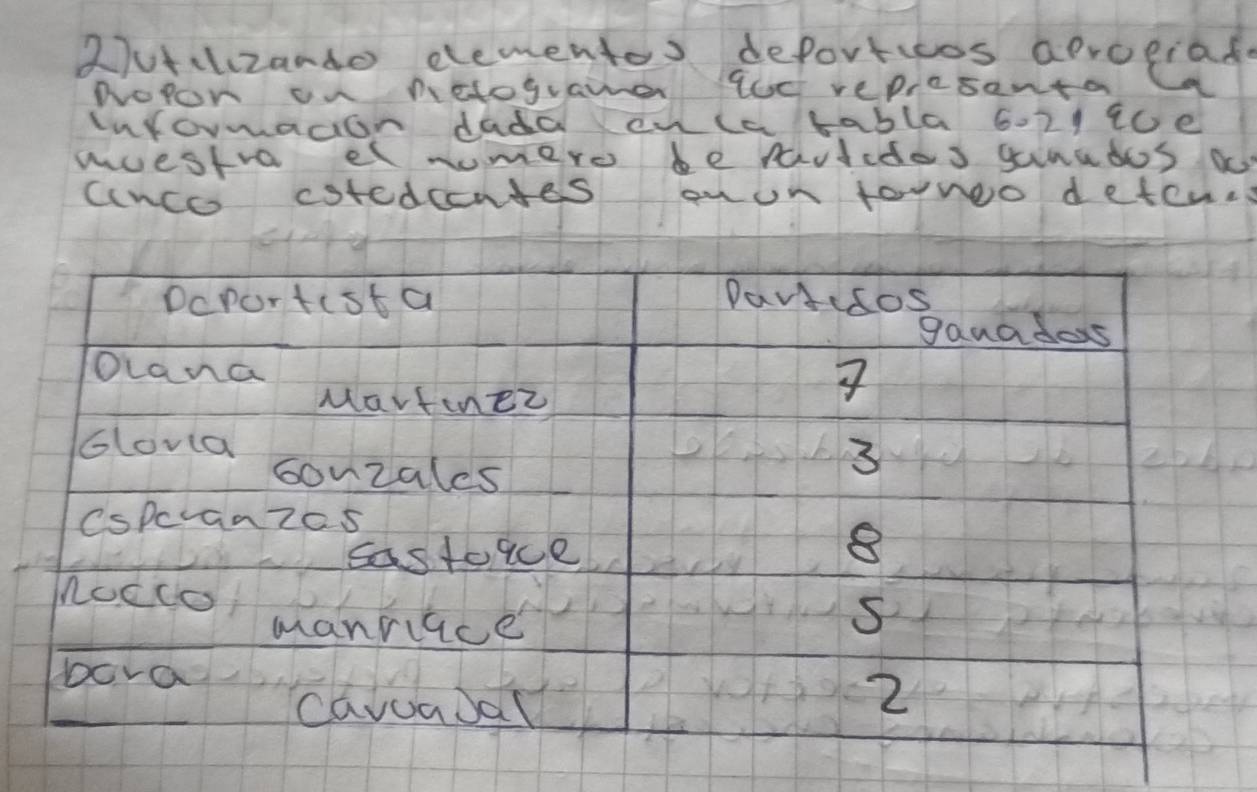 2) utilizando elementos deporticos apropiad
propon un pictograma que representa la
informacion dada en la tabla 6.21 que
muestra el numero de partidos ganados
cinco estediantes en un torneo de
Deportista
Partidos
ganados
Diana
Martinez
7
Gloria
Gonzales
3
Esperanzas
Sastoque
8
Rocco
Manrique
5
Dora
Carvajal
2